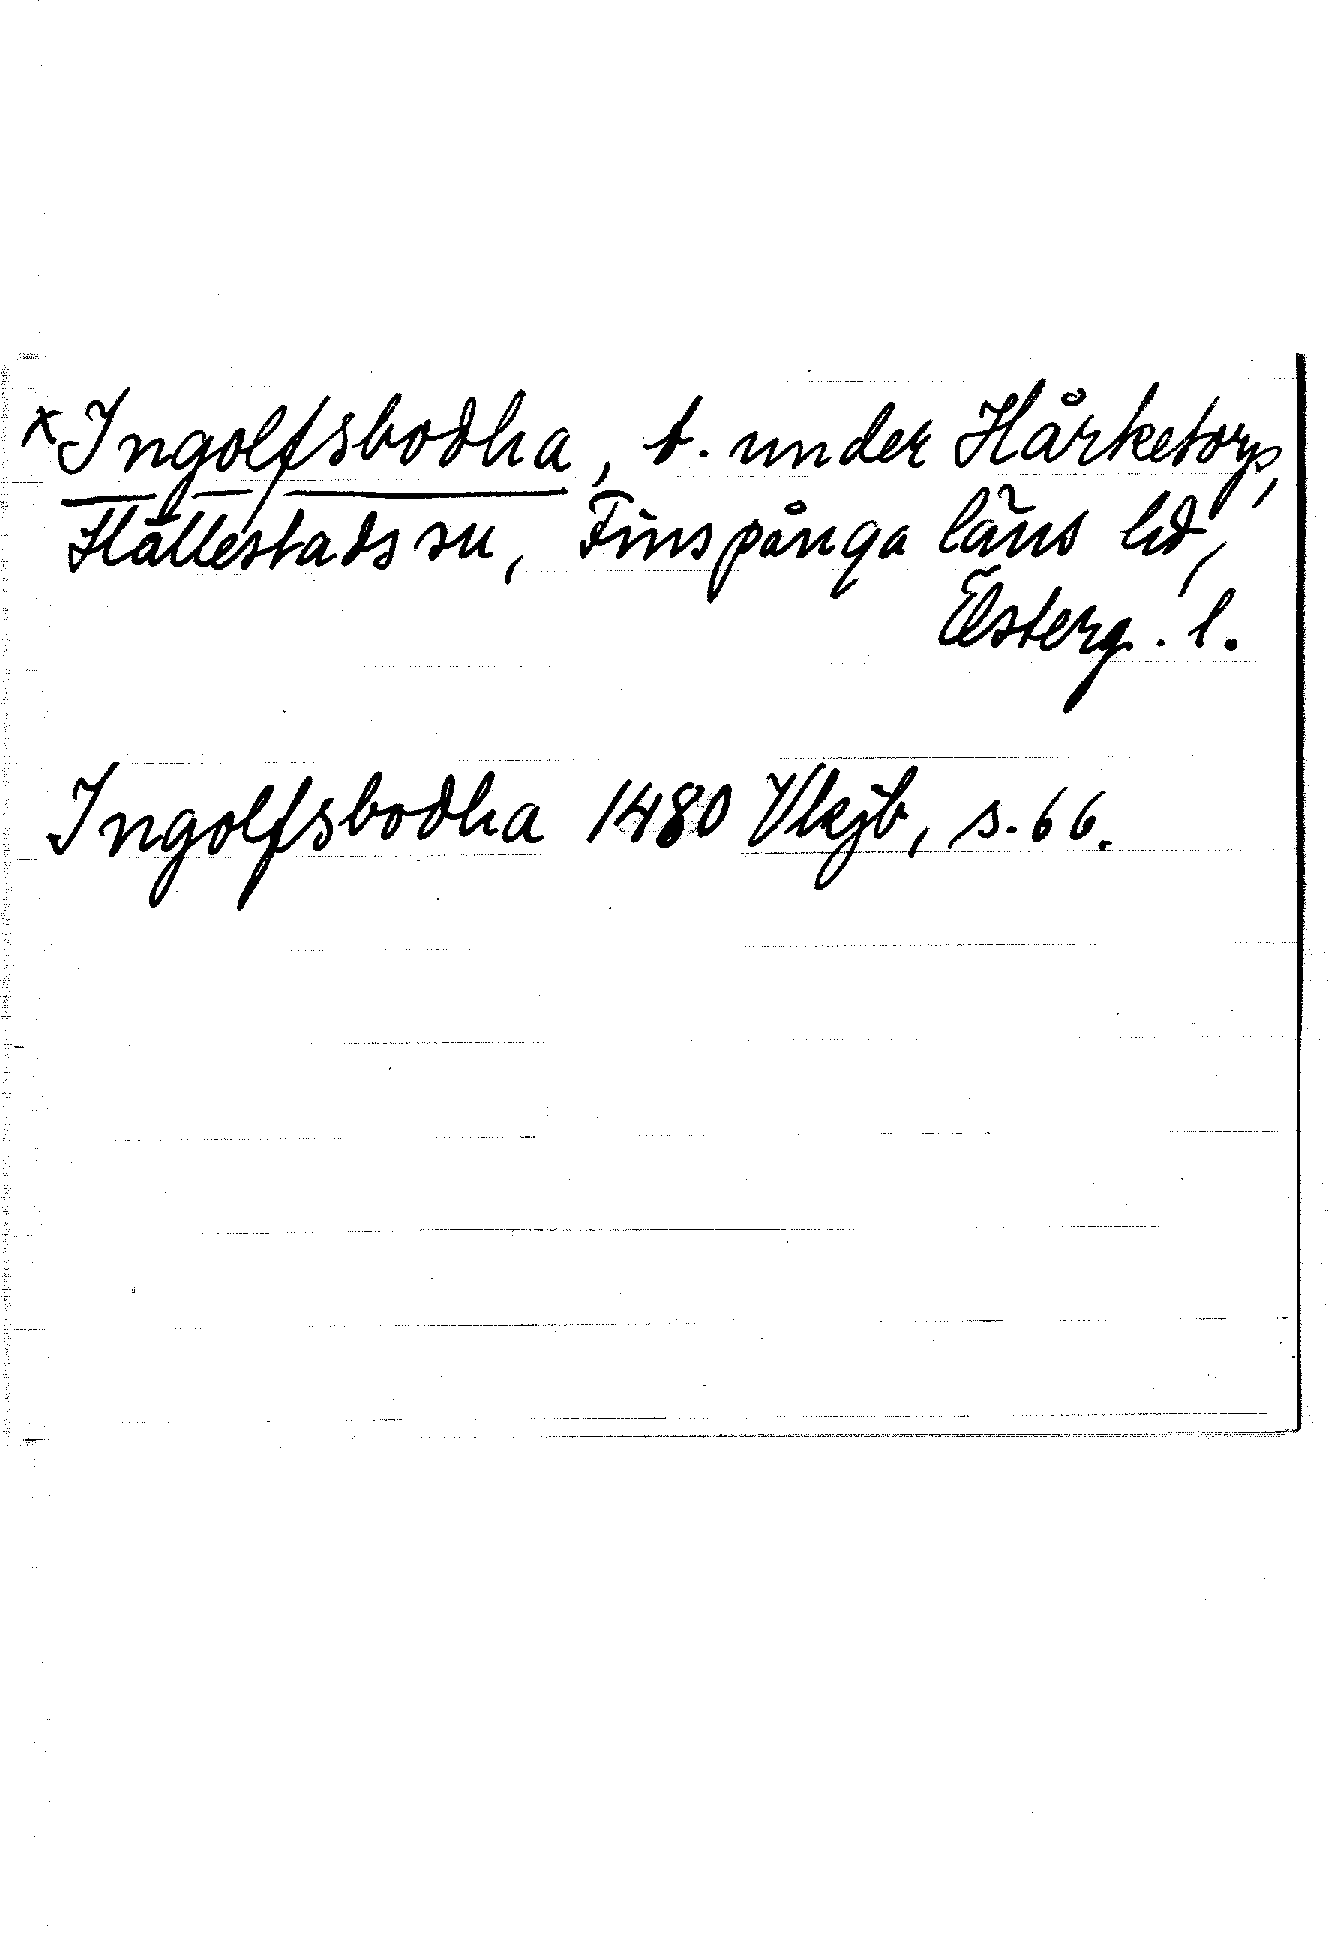 x Ingolfsbodha, t. under Hårketorp,
Hällestads sn, Finspånga läns hd,
Österg. l.
Ingolfsbodha 1480 Vkjb, s. 66.